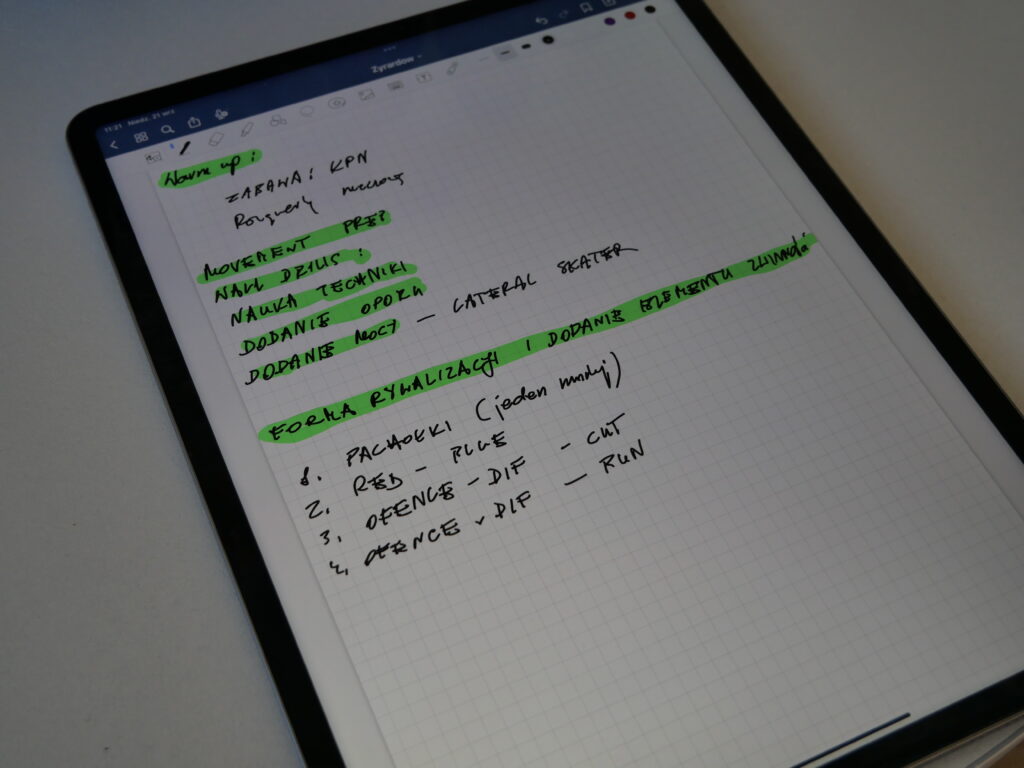 11:21 Niedz. 21 wrz
Zyrardow
Warm up:
ZABAWA: KPN
MOVEMENT PREP
WALL DRILLS:
NAUKA TECHNIKI
DODANIE OPORU
DODANIE MOCY - LATERAL SKATER
FORMA RYWALIZACJI I DODANIE ELEMENTU
1. PACHOŁKI (jeden mniej)
2. RED - BLUE
3. OFENCE - DIF - CUT
4. OFENCE - DIF - RUN